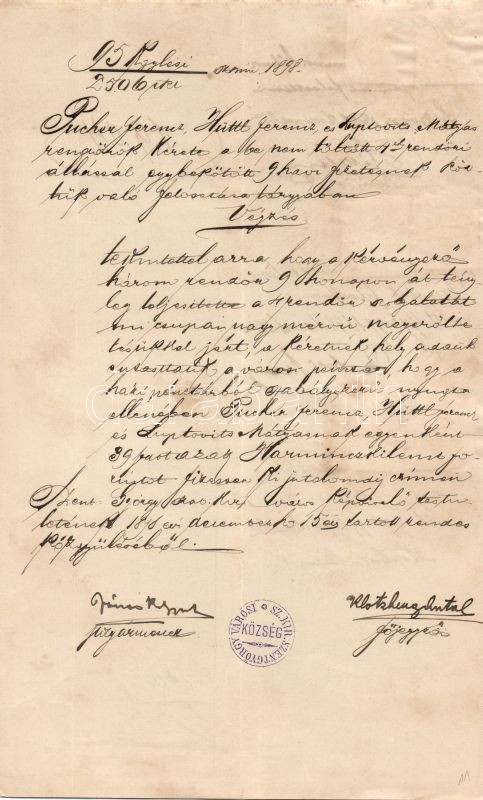 95 Kgylési
2506 szám 1898.
Pucher Ferencz, Hüttl Ferencz, és Lyptovits Mátyás
rendőrök kérete a be nem töltött 4ik rendőri
állással egybekötött 9 havi fizetésnek köz-
tük való felosztása tárgyában
Végzés
tekintettel arra hogy a kérvényező
három rendőr 9 honapon át tény-
leg teljesítette a 4 rendőr szolgálatát
mi csupán nagy mérvű megerőlte-
tésükkel járt, a kéretnek hely adatik
utasíttatik a városi pénztár, hogy a
házi pénztárból szabályszerű nyugta
ellenében Pucher Ferencz, Hüttl Ferencz
és Lyptovits Mátyásnak egyenként
39 frtot azaz Harminczkilencz fo-
rintot fizessen ki jutalomdíj czímén
Szent-György szab. kir. város képviselő testü-
letének 189 évi december hó 15 én tartott rendes
közgyűléséből.
János
polgármester
főjegyző
SZ. KIR. SZENTGYÖRGY VÁROSI
KÖZSÉG
11